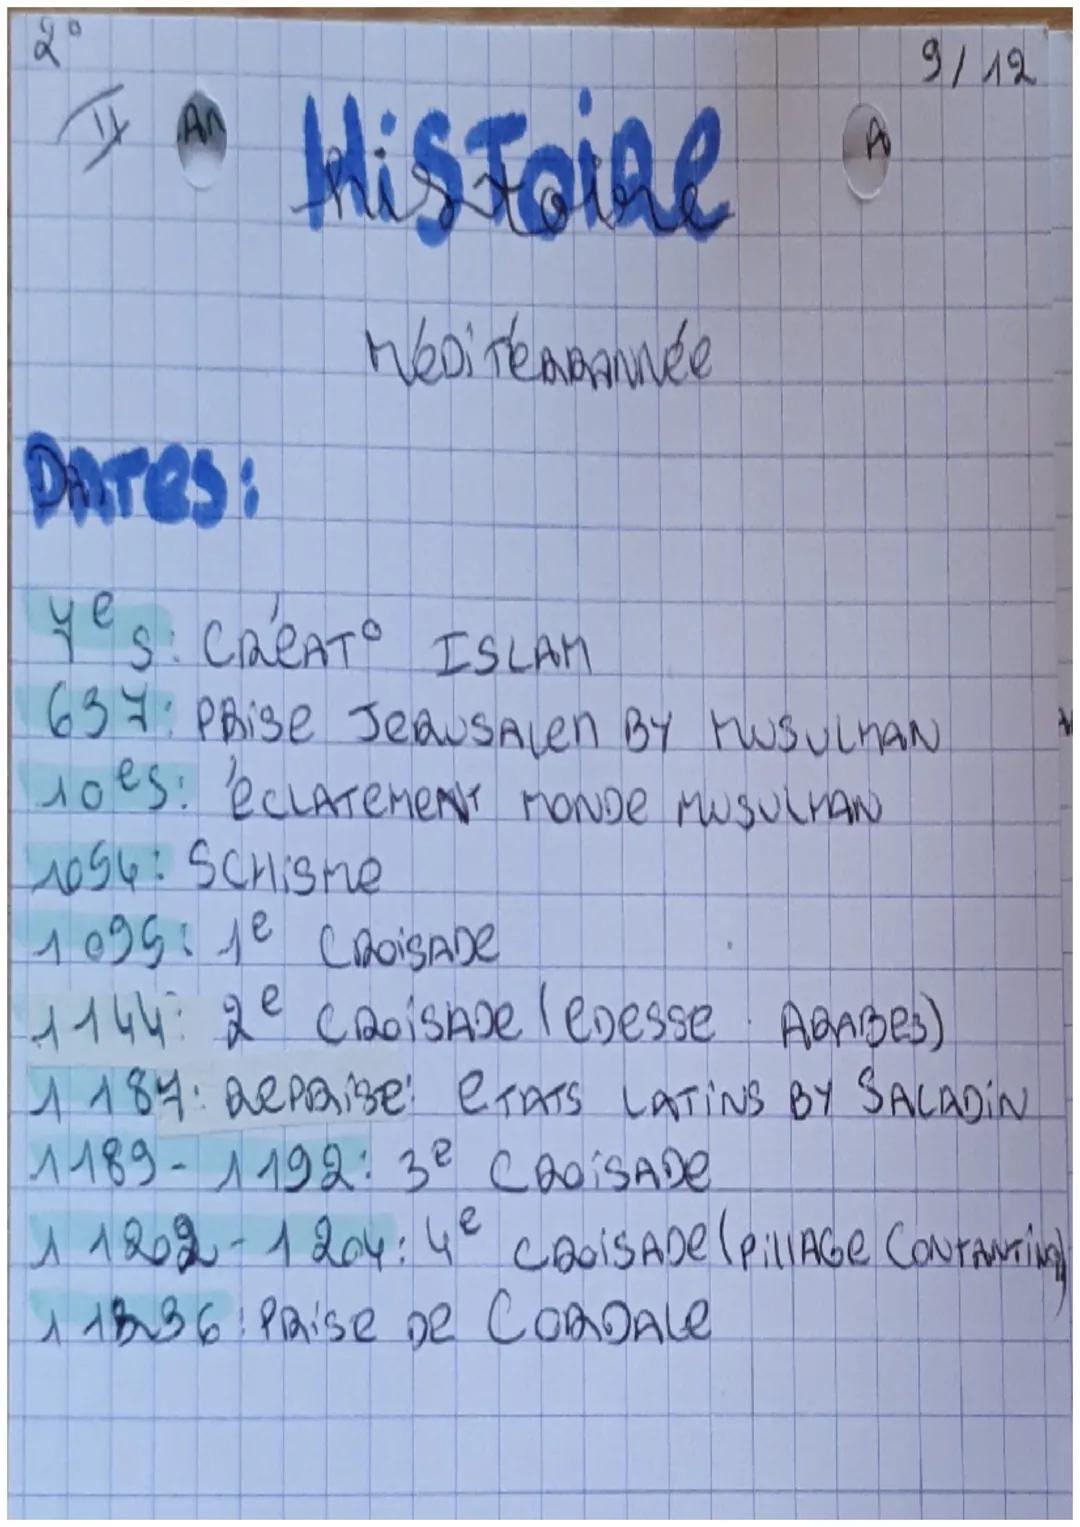 2° 9/12
II An Histoire A
MéDiTéRRANNée
DATES:
7e s: CRéAT° ISLAM
637: PRise JeRUSALen BY MUSULMAN
10es: éCLATEMENT MONDE MUSULMAN
1054: SCHisme
1095: 1e CROiSADe
1144: 2e CROiSADe (eDesse ARABes)
1187: RePRise eTATS LATiNS BY SALADiN
1189-1192: 3e CROiSADe
1202-1204: 4e CROiSADe (PiLLAGe
: PRise De CORDALe